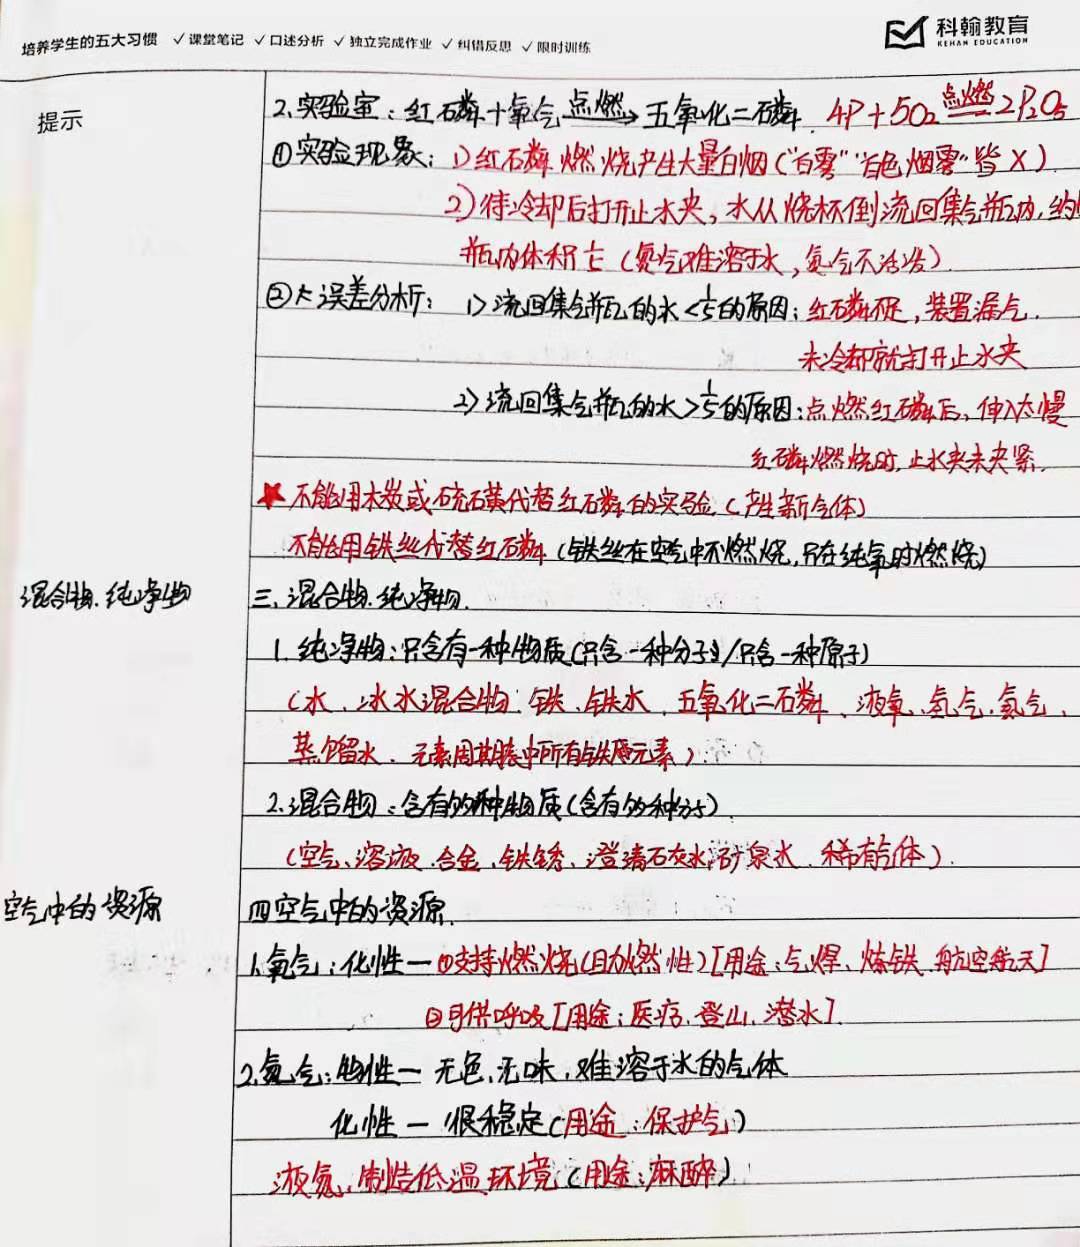 培养学生的五大习惯 ✓课堂笔记 ✓口述分析 ✓独立完成作业 ✓纠错反思 ✓限时训练
科翰教育
KEHAN EDUCATION
提示
2.实验室:红磷+氧气 点燃→ 五氧化二磷. 4P+5O₂ 点燃 2P₂O₅
①实验现象:1)红磷燃烧产生大量白烟("白雾""白色烟雾"皆×)
2)待冷却后打开止水夹,水从烧杯倒流回集气瓶内,约
瓶内体积 (氮气难溶于水,氮气不活泼)
②误差分析:1)流回集气瓶的水<1/5的原因:红磷不足,装置漏气.
未冷却就打开止水夹
2)流回集气瓶的水>1/5的原因:点燃红磷后,伸入太慢
红磷燃烧时,止水夹未夹紧.
★不能用木炭或硫磺代替红磷的实验(产生新气体)
不能用铁丝代替红磷(铁丝在空气中不燃烧,只在纯氧时燃烧)
混合物.纯净物
三.混合物.纯净物.
1.纯净物:只含有一种物质(只含一种分子/只含一种原子)
(水、冰水混合物、铁、铁水、五氧化二磷、液氧、氢气、氮气、
蒸馏水、元素周期表中所有 元素)
2.混合物:含有多种物质(含有多种分子)
(空气、溶液、合金、铁锈、澄清石灰水,矿泉水、稀有气体).
空气中的资源
四空气中的资源.
1.氧气:化性—①支持燃烧(助燃性)[用途:气焊、炼铁、航空航天]
②可供呼吸[用途:医疗、登山、潜水].
2.氮气:物性—无色、无味,难溶于水的气体
化性—很稳定(用途:保护气)
液氮,制造低温环境(用途:麻醉)